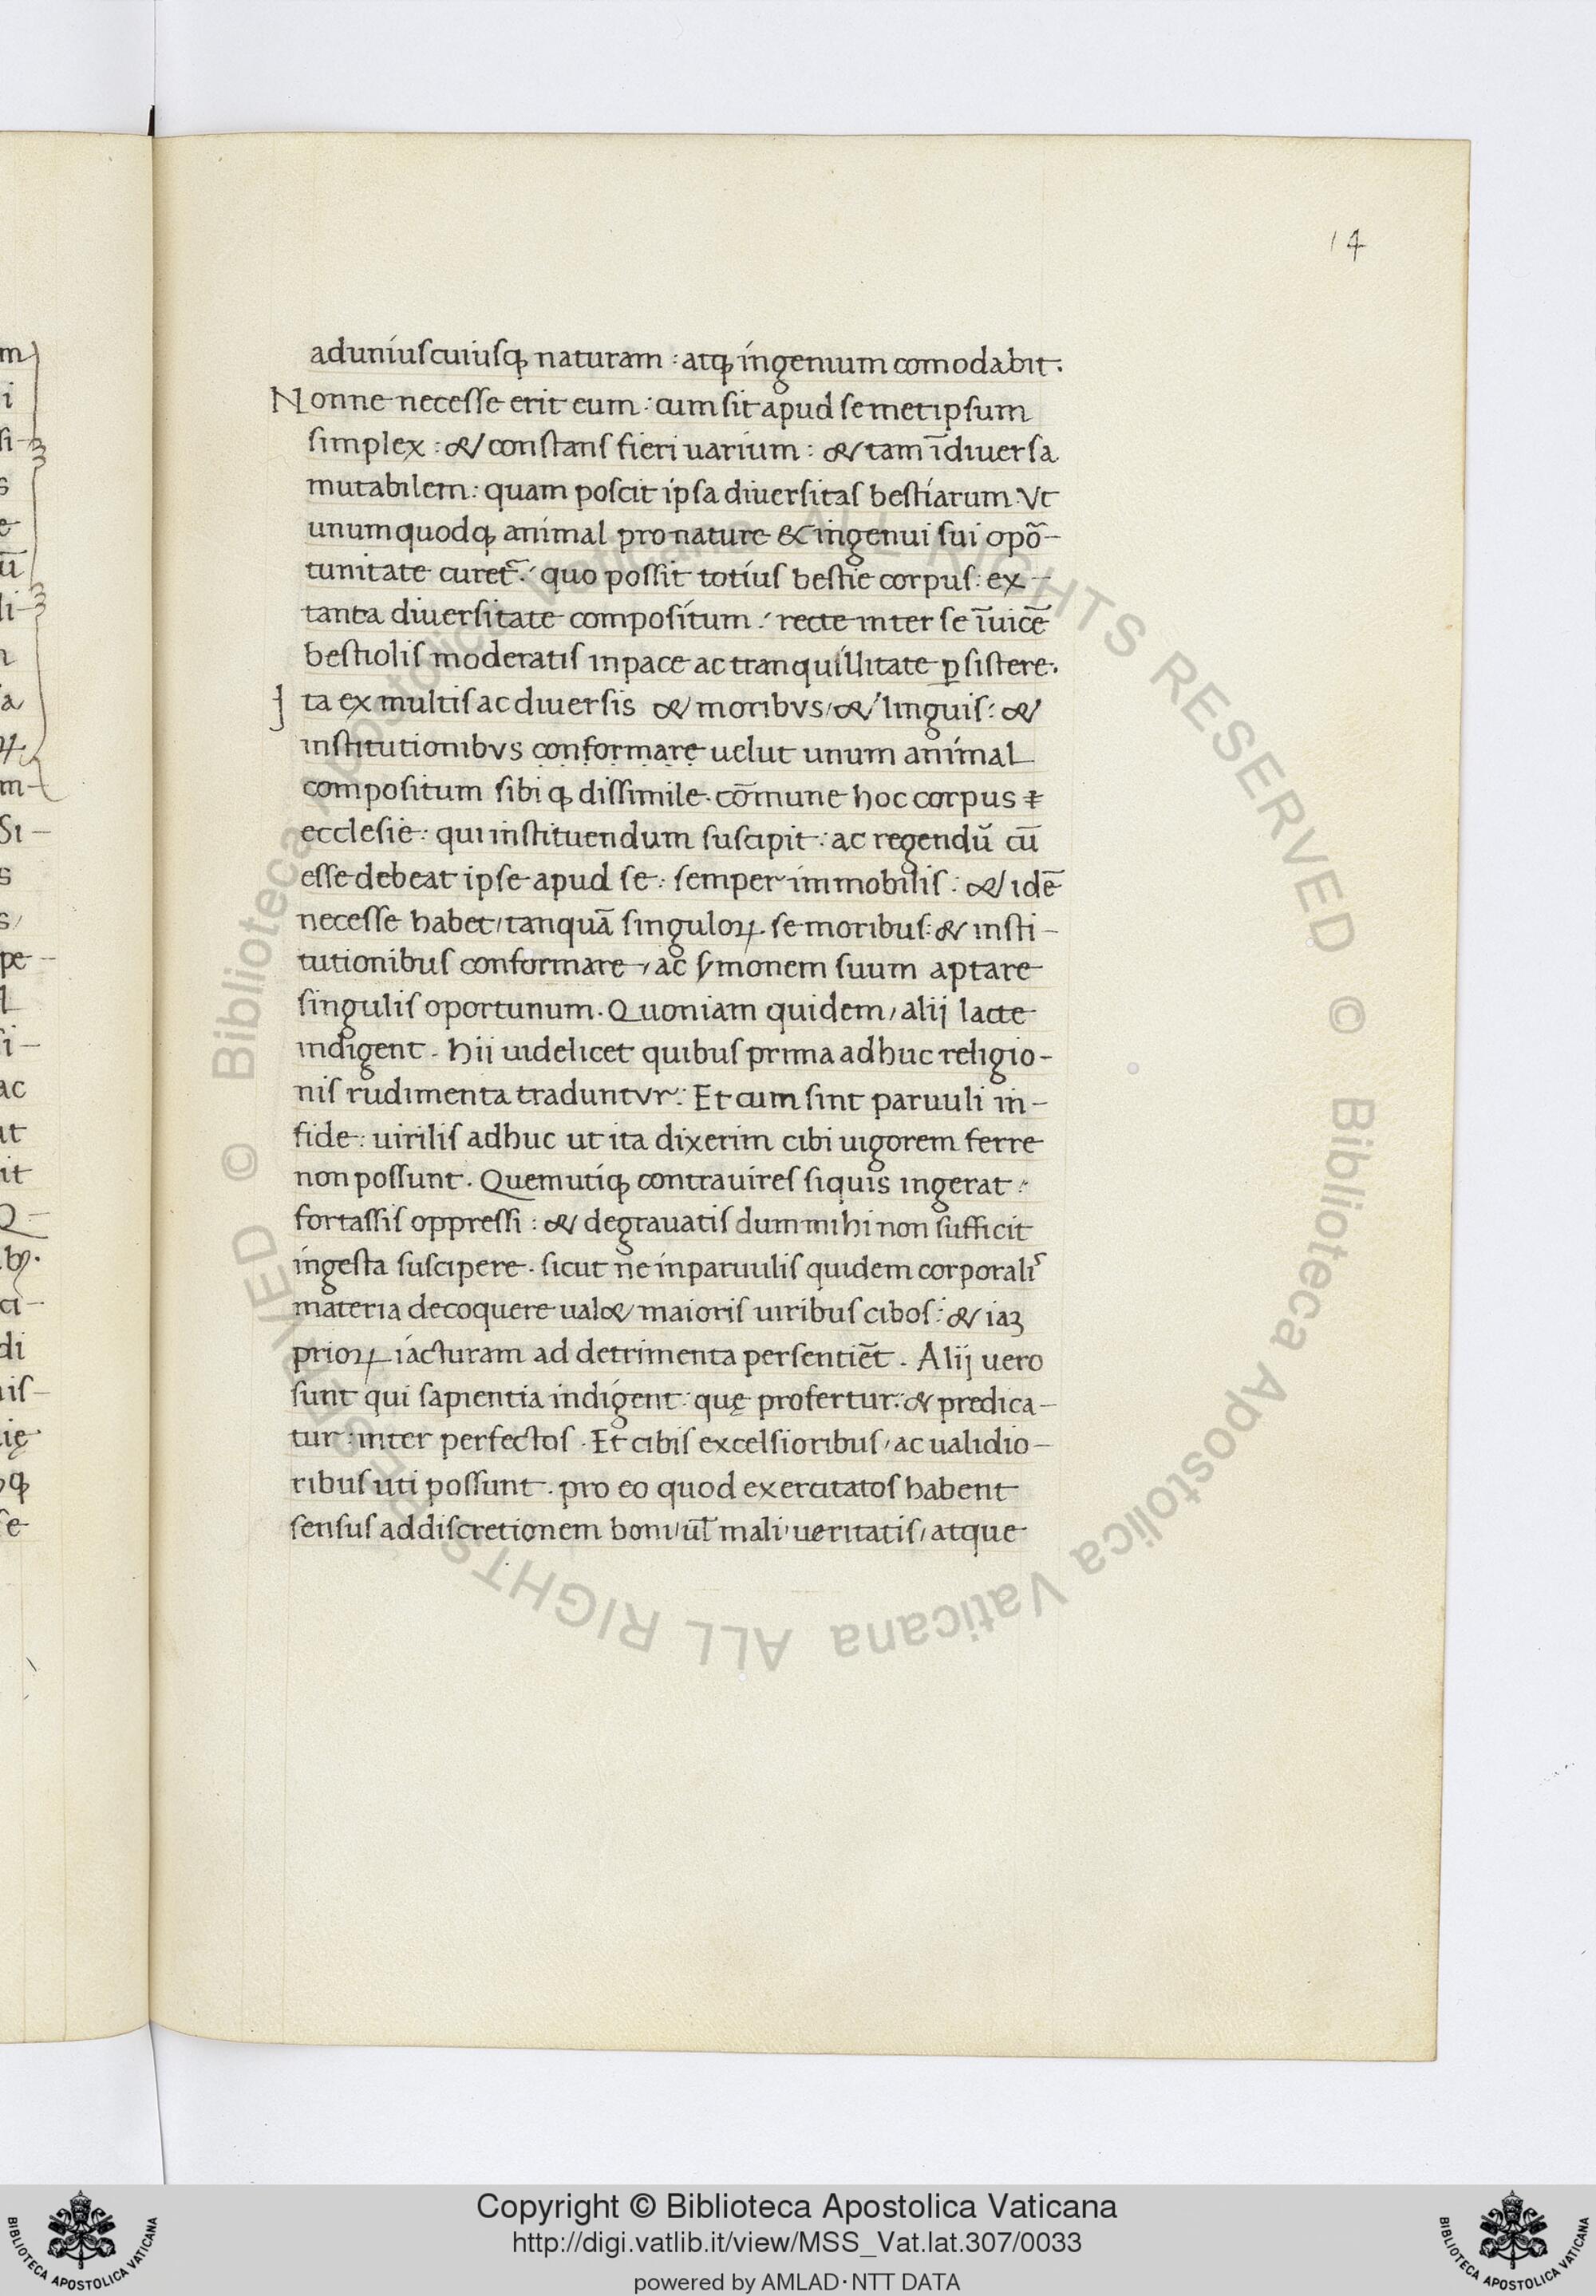 14
ad uniuscuiusqꝫ naturam : atqꝫ ingenium comodabit .
Nonne necesse erit eum : cum sit apud semetipsum
simplex : & constans fieri uarium : & tam ī diuersa
mutabilem : quam poscit ipsa diuersitas bestiarum . Vt
unumquodqꝫ animal pro nature & ingenui sui opō-
tunitate curet᷑ : quo possit totius bestie corpus : ex-
tanta diuersitate compositum : recte inter se īuicē
bestiolis moderatis in pace ac tranquillitate ꝑsistere .
Ita ex multis ac diuersis & moribus / & linguis : &
institutionibus conformare uelut unum animal
compositum sibiqꝫ dissimile . cōmune hoc corpus
ecclesie : qui instituendum suscipit : ac regendū cū
esse debeat ipse apud se : semper immobilis : & idē
necesse habet / tanquā singuloꝝ se moribus : & insti-
tutionibus conformare / ac s̷monem suum aptare
singulis oportunum . Quoniam quidem / alij lacte
indigent . hii uidelicet quibus prima adhuc religio-
nis rudimenta traduntur : Et cum sint paruuli in-
fide : uirilis adhuc ut ita dixerim cibi uigorem ferre
non possunt . Quem utiqꝫ contra uires siquis ingerat :
fortassis oppressi : & degrauatis dum mihi non sufficit
ingesta suscipere . sicut ne in paruulis quidem corporalis
materia decoquere ualet maioris uiribus cibos : & iaꝫ
prioꝝ iacturam ad detrimenta persentiēt . Alij uero
sunt qui sapientia indigent : quę profertur : & predica-
tur : inter perfectos . Et cibis excelsioribus / ac ualidio-
ribus uti possunt . pro eo quod exercitatos habent
sensus ad discretionem boni / ul̄ mali / ueritatis / atque
© Biblioteca Apostolica Vaticana ALL RIGHTS RESERVED
© Biblioteca Apostolica Vaticana ALL RIGHTS RESERVED
BIBLIOTECA APOSTOLICA VATICANA
Copyright © Biblioteca Apostolica Vaticana
http://digi.vatlib.it/view/MSS_Vat.lat.307/0033
powered by AMLAD·NTT DATA
BIBLIOTECA APOSTOLICA VATICANA